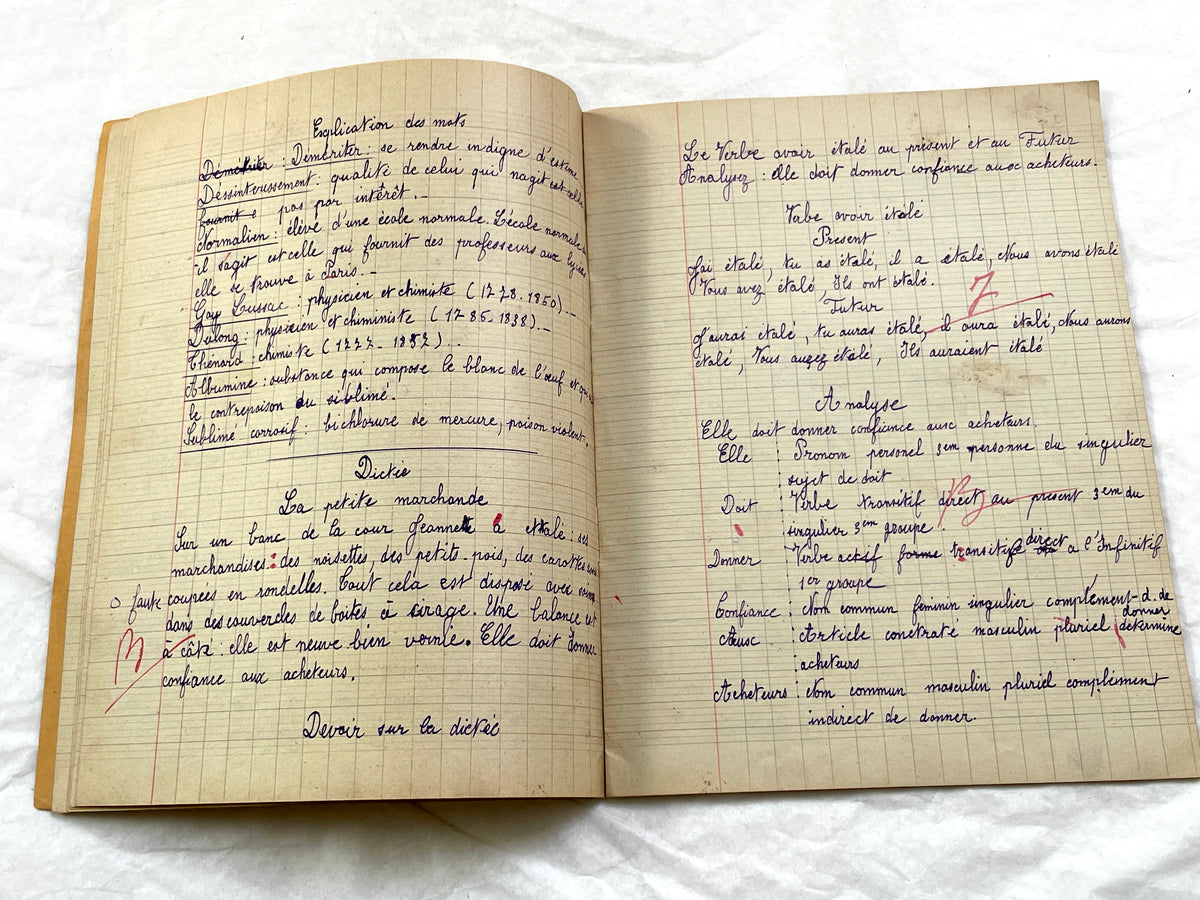 Explication des mots
Démériter : Demériter : se rendre indigne d'estime
Déssinteressement : qualité de celui qui nagit est celle
fournit e pas par intérêt. _
Normalien : élévé d'une école normale. L'école normale
il sagit est celle qui fournit des professeurs aux lycées
elle se trouve à Paris. _
Gay Lussac : physicien et chimiste (1778. 1850). _
Dulong : physicien et chiministe (1785. 1838). _
Thénard : chimiste (1777 _ 1857) _
Albumine : substance qui compose le blanc de l'œuf et qui
le contrepoison du siblimé.
Sublimé corrosif : bichlorure de mercure, poison violent.
Dictée
La petite marchande
Sur un banc de la cour Jeannette a étalé ses
marchandises : des noisettes, des petits-pois, des carottes
0 faute coupées en rondelles. Tout cela est disposé avec soin
dans des couvercles de boites à cirage. Une balance est
à côté : elle est neuve bien vernie. Elle doit donner
confiance aux acheteurs.
B
Devoir sur la dictée
Le Verbe avoir étalé au présent et au Futur
Analysez : elle doit donner confiance aux acheteurs.
Verbe avoir étalé
Present
J'ai étalé, tu as étalé, il a étalé, Nous avons étalé
Vous avez étalé, Ils ont étalé.
7
Futur
J'aurai étalé, tu auras étalé, il aura étalé, Nous aurons
étalé, Vous aurez étalé, Ils auraient étalé
Analyse
Elle doit donner confiance aux acheteurs.
Elle : Pronom personel 3em personne du singulier
sujet de doit
Doit : Verbe transitif direct au present 3em du
singulier 3em groupe.
B
Donner : Verbe actif forme transitif direct a l'Infinitif
1er groupe
Confiance : Nom commun feminin singulier complément-d. de donner
Ausc : Article conctraté masculin pluriel détermine
acheteurs
Acheteurs : Nom commun masculin pluriel complément
indirect de donner.